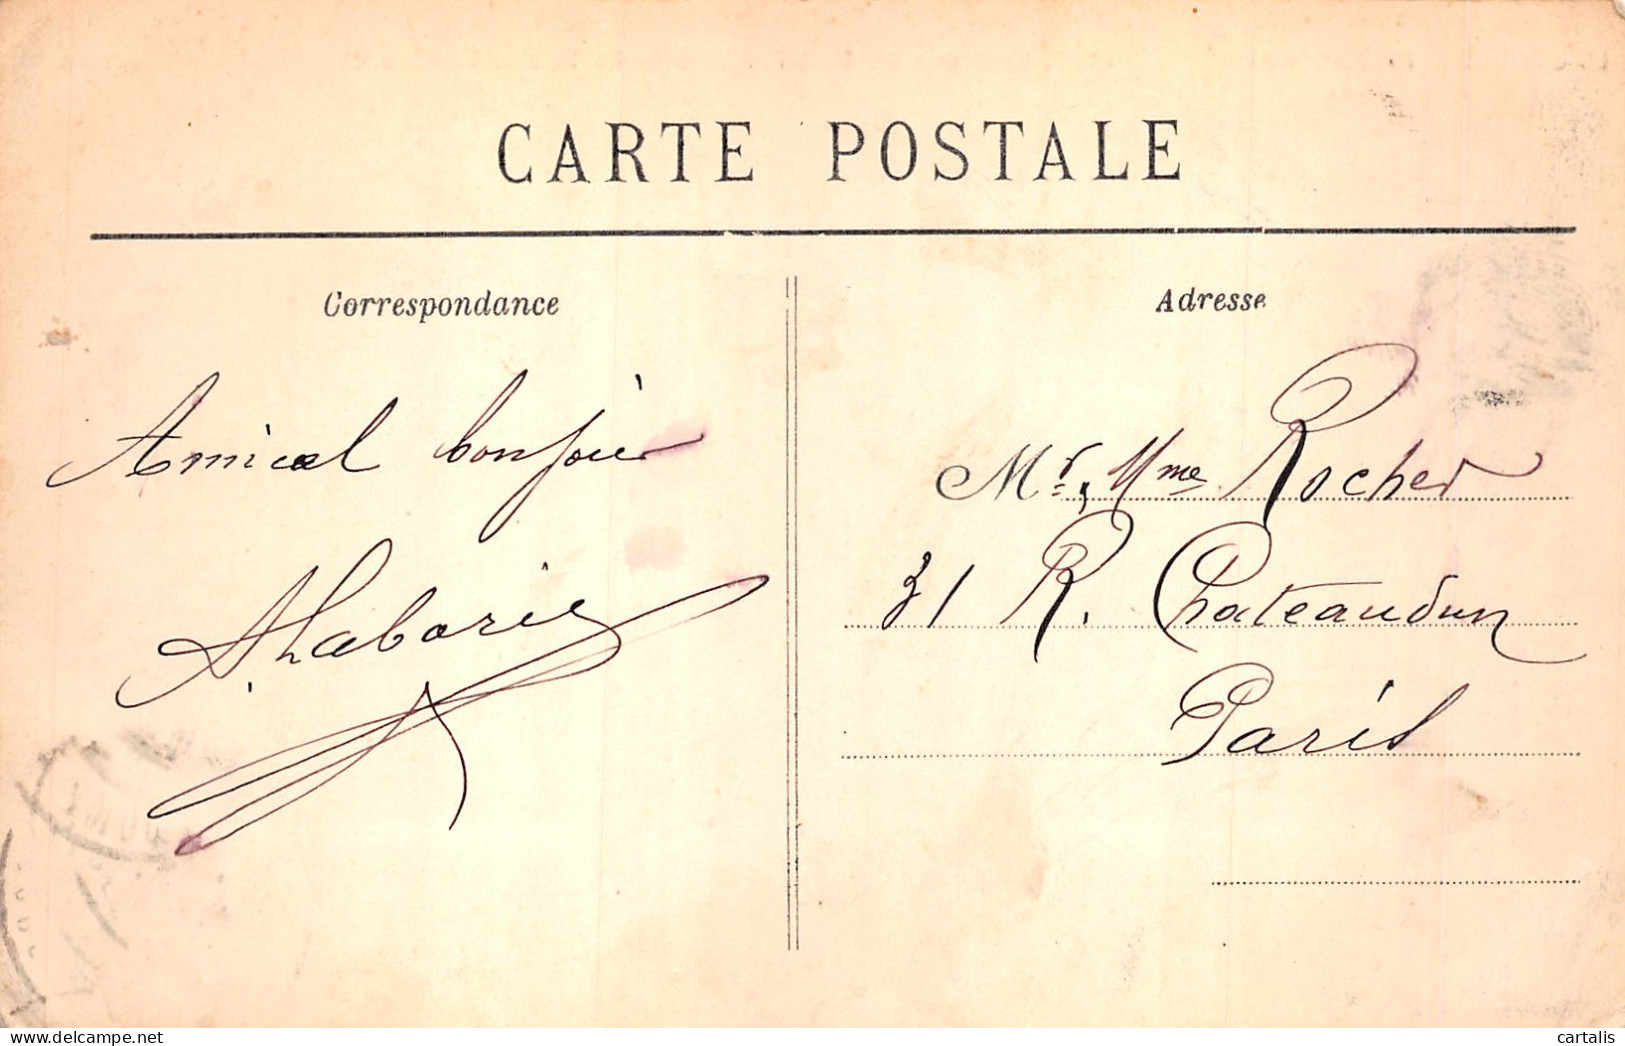 CARTE POSTALE
Correspondance
Amical bonjour
A. Laborie
Adresse
Mr, Mme Rocher
31 R. Chateaudun
Paris
delcampe.net
cartalis